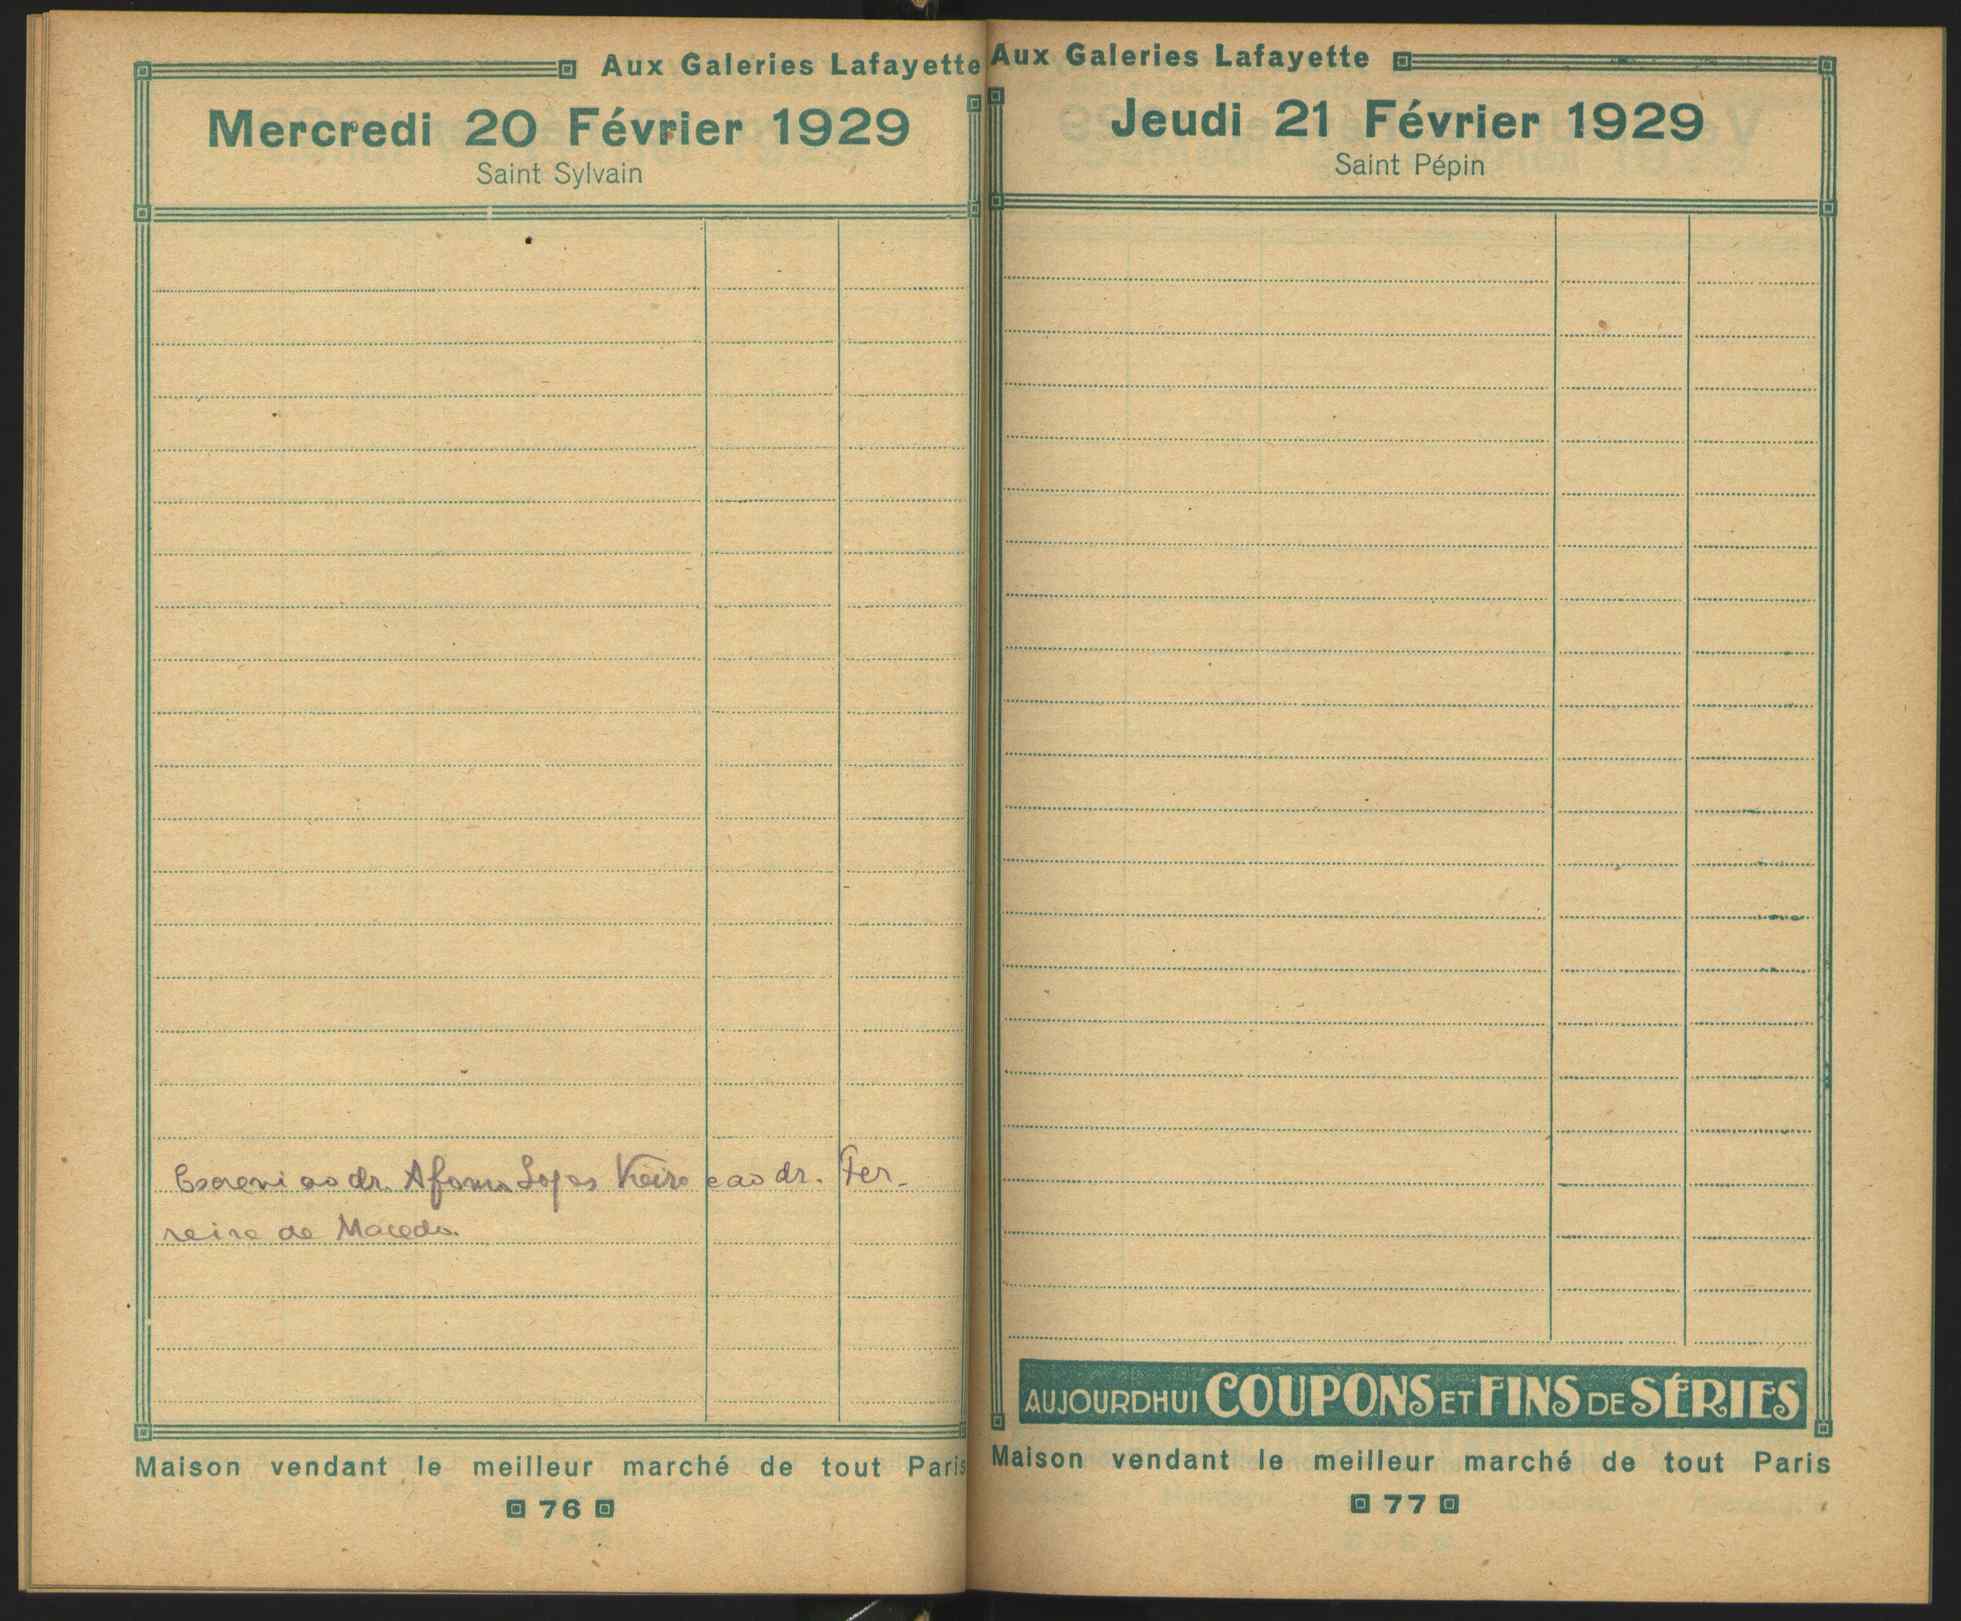 Aux Galeries Lafayette
Mercredi 20 Février 1929
Saint Sylvain
Escrevi ao dr. Afonso Lopes Vieira e ao dr. Fer-
reira de Macedo.
Maison vendant le meilleur marché de tout Paris
76
Aux Galeries Lafayette
Jeudi 21 Février 1929
Saint Pépin
AUJOURDHUI COUPONS ET FINS DE SÉRIES
Maison vendant le meilleur marché de tout Paris
77